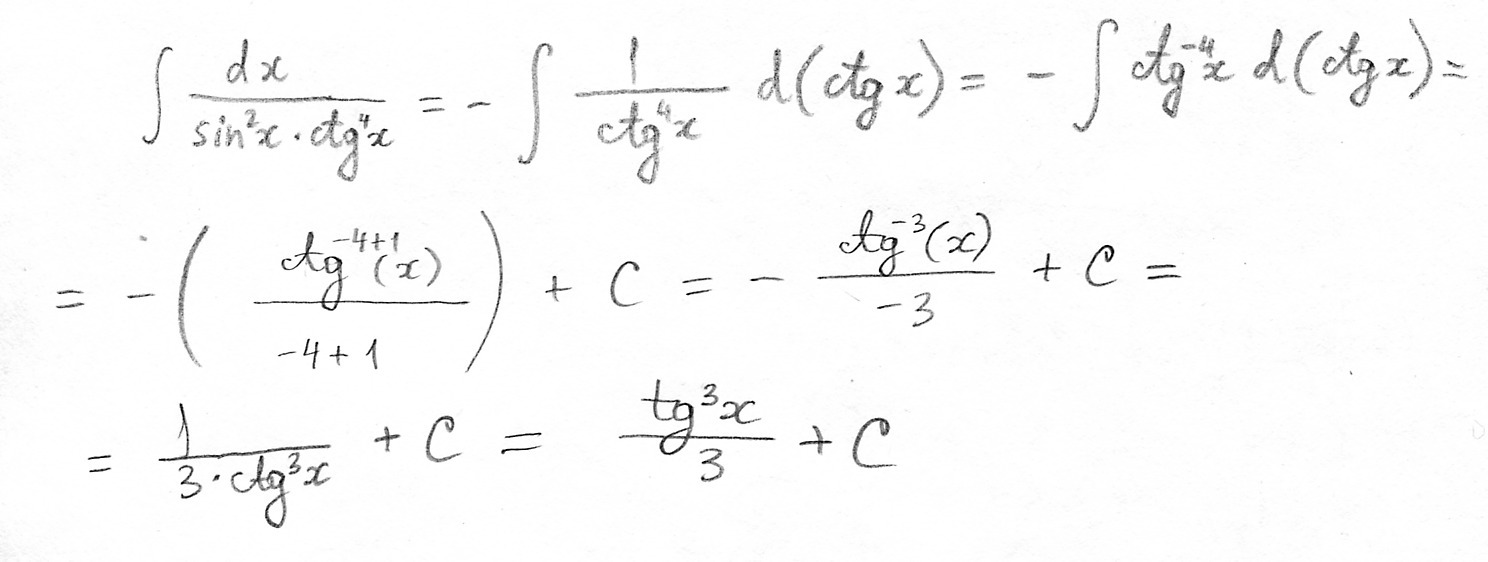 ∫ dx / (sin²x · ctg⁴x) = - ∫ 1 / ctg⁴x d(ctg x) = - ∫ ctg⁻⁴x d(ctg x) =
= - ( ctg⁻⁴⁺¹(x) / (-4+1) ) + C = - ctg⁻³(x) / -3 + C =
= 1 / (3 · ctg³x) + C = tg³x / 3 + C